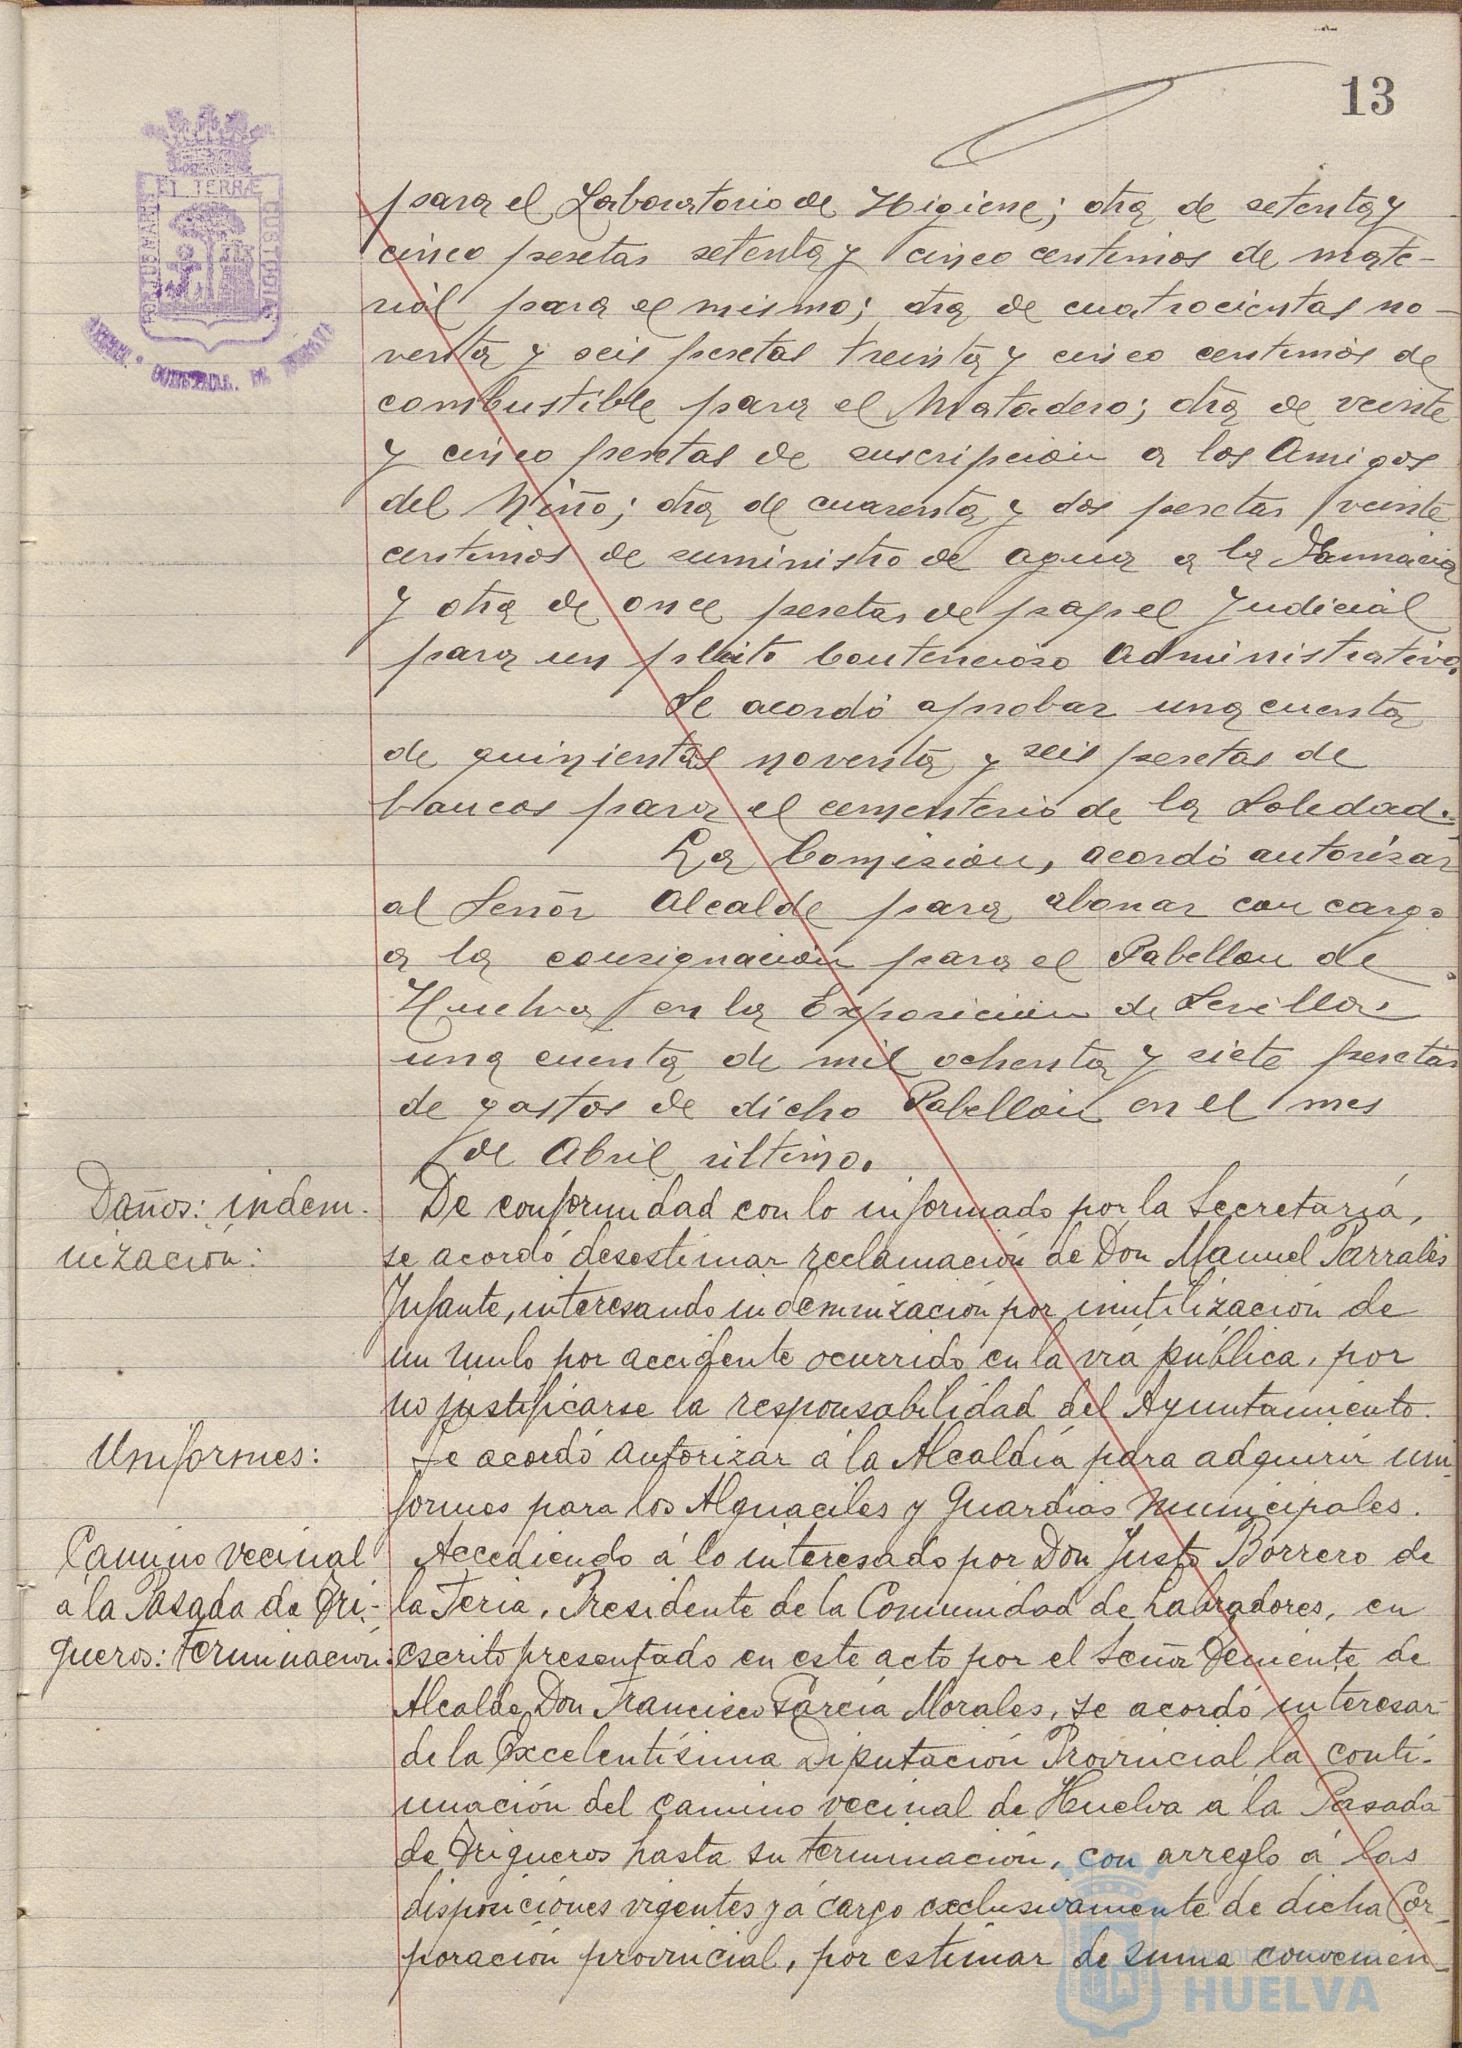 13
ET TERRÆ
PORTUS MARIS
CUSTODIA
para el Laboratorio de Higiene; otra de setenta y
cinco pesetas setenta y cinco centimos de mate-
rial para el mismo; otra de cuatrocientas no-
venta y seis pesetas treinta y cinco centimos de
combustible para el Matadero; otra de veinte
y cinco pesetas de suscripcion a los Amigos
del Niño; otra de cuarenta y dos pesetas veinte
centimos de suministro de agua a la Farmacia
y otra de once pesetas de papel judicial
para un pleito Contencioso Administrativo.
Se acordó aprobar una cuenta
de quinientas noventa y seis pesetas de
bancos para el cementerio de la Soledad.
La Comision, acordó autorizar
al Señor Alcalde para abonar con cargo
a la consignacion para el Pabellon de
Huelva en la Exposicion de Sevilla,
una cuenta de mil ochenta y siete pesetas
de gastos de dicho Pabellon en el mes
de Abril último.
Daños: indem-
nización:
De conformidad con lo informado por la Secretaría,
se acordó desestimar reclamación de Don Manuel Parrales
Infante, interesando indemnización por inutilización de
un mulo por accidente ocurrido en la vía pública, por
no justificarse la responsabilidad del Ayuntamiento.
Uniformes:
Se acordó autorizar á la Alcaldía para adquirir uni-
formes para los Alguaciles y Guardias Municipales.
Camino vecinal
a la Pasada de Tri-
gueros: terminación:
Accediendo á lo interesado por Don Justo Borrero de
la Feria, Presidente de la Comunidad de Labradores, en
escrito presentado en este acto por el Señor Teniente de
Alcalde Don Francisco García Morales, se acordó interesar
de la Excelentísima Diputación Provincial la conti-
nuación del camino vecinal de Huelva a la Pasada
de Trigueros hasta su terminación, con arreglo á las
disposiciones vigentes y á cargo exclusivamente de dicha Cor-
poración provincial, por estimar de suma convenien-
HUELVA